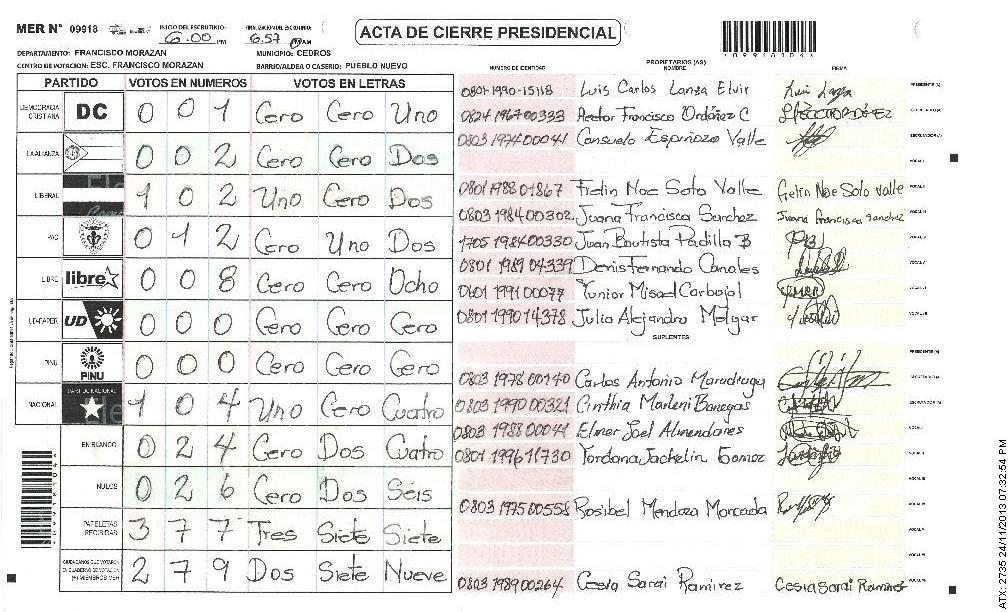 MER N° 09918
INICIO DEL ESCRUTINIO: 6:00 PM
FINALIZACION DEL ESCRUTINIO: 6:57 AM
ACTA DE CIERRE PRESIDENCIAL
DEPARTAMENTO: FRANCISCO MORAZAN
MUNICIPIO: CEDROS
CENTRO DE VOTACION: ESC. FRANCISCO MORAZAN
BARRIO/ALDEA O CASERIO: PUEBLO NUEVO
PARTIDO VOTOS EN NUMEROS VOTOS EN LETRAS
DEMOCRACIA CRISTIANA DC 0 0 1 Cero Cero Uno
LA ALIANZA 0 0 2 Cero Cero Dos
LIBERAL 1 0 2 Uno Cero Dos
PAC 0 1 2 Cero Uno Dos
LIBRE libre 0 0 8 Cero Cero Ocho
UD-FAPER UD 0 0 0 Cero Cero Cero
PINU PINU 0 0 0 Cero Cero Cero
NACIONAL PARTIDO NACIONAL 1 0 4 Uno Cero Cuatro
EN BLANCO 0 2 4 Cero Dos Cuatro
NULOS 0 2 6 Cero Dos Séis
PAPELETAS RECIBIDAS 3 7 7 Tres Siete Siete
CIUDADANOS QUE VOTARON EN CUADERNO DE VOTACION (+) MIEMBROS MER 2 7 9 Dos Siete Nueve
NUMERO DE IDENTIDAD PROPIETARIOS (AS) NOMBRE FIRMA
0801-1990-15118 Luis Carlos Lanza Elvir Luis Lanza PRESIDENTE (A)
0824196700333 Hector Francisco Ordóñez C
0803197400041 Consuelo Espinoza Valle
VOCAL I
0801198801867 Fidin Noe Soto Valle Noe Soto Valle VOCAL II
0803198400302 Juana Francisca Sanchez Juana Francisca Sanchez
1705198400330 Juan Bautista Padilla B
0801198904339 Denis Fernando Canales
0601199100077 Yunior Misael Carbajal
0801199014378 Julio Alejandro Melgar
SUPLENTES
PRESIDENTE (A)
0803197800140 Carlos Antonio Maradiaga
0803199000321 Cinthia Marleni Banegas
0803198800041 Elmer Joel Almendares
0801199611730 Yordana Jackelin Gomez
0803197500558 Rosibel Mendoza Moncada
0803198900264 Cesia Sarai Ramirez Cesia Sarai Ramirez
ATX: 2735 24/11/2013 07:32:54 PM